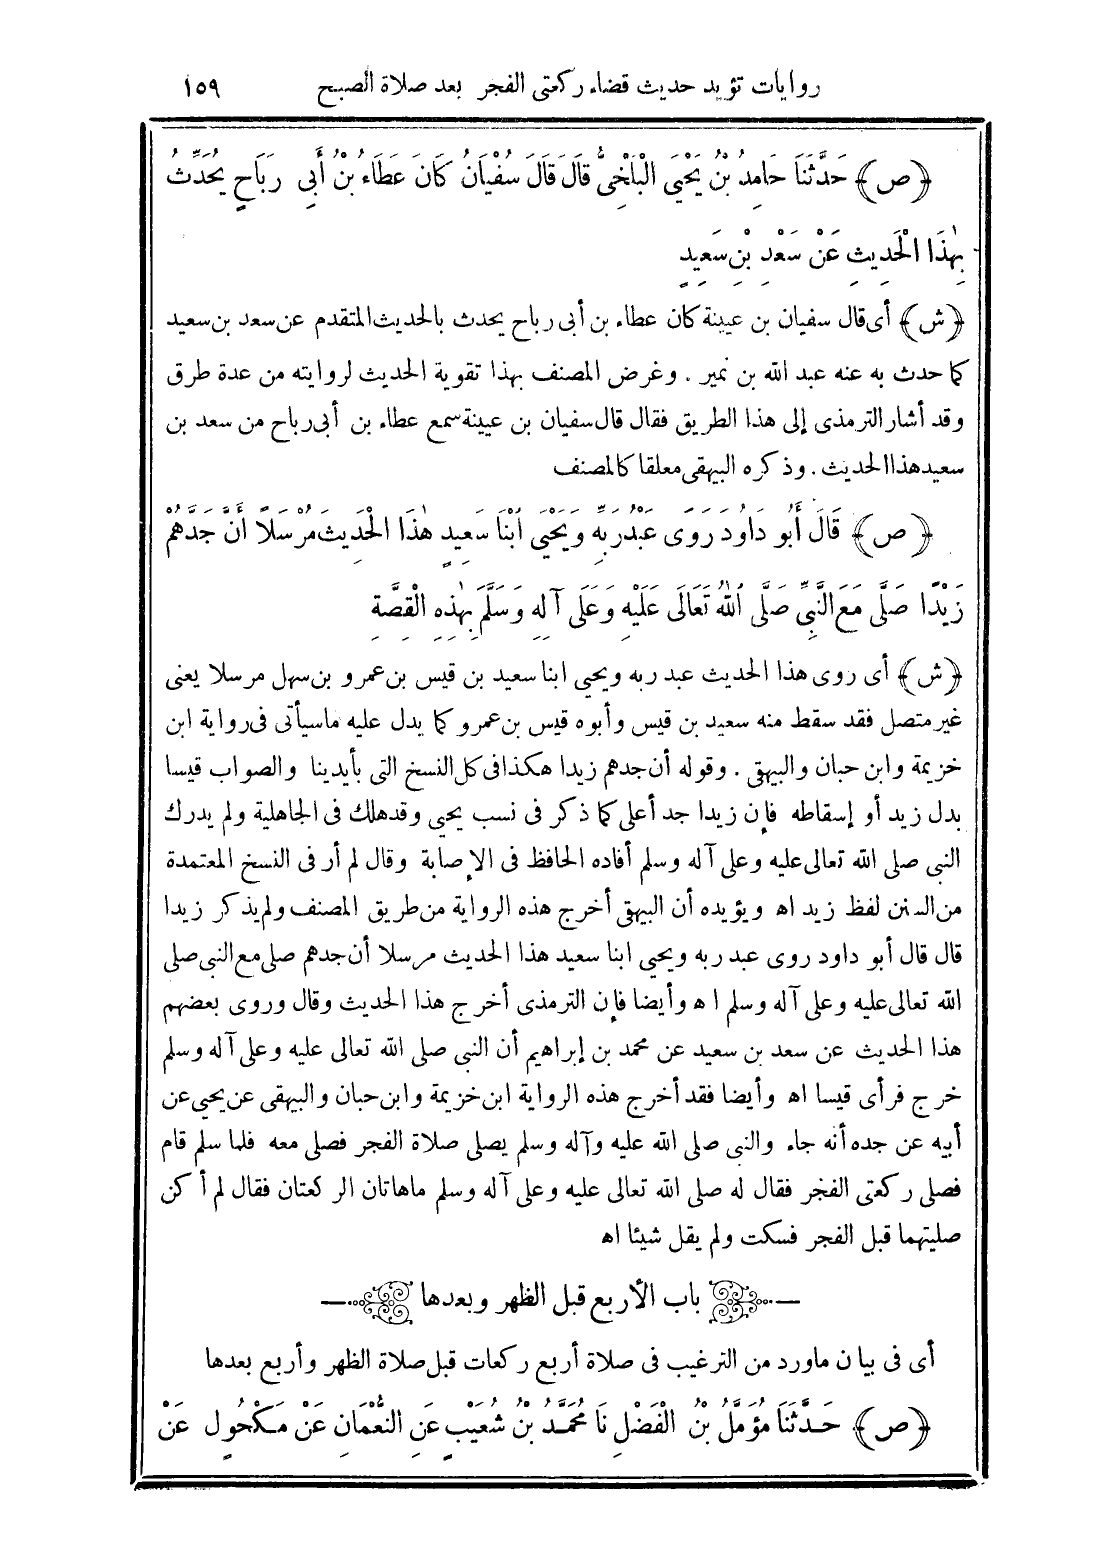 روايات تؤيد حديث قضاء ركعتى الفجر بعد صلاة الصبح ١٥٩
﴿ص﴾ حَدَّثَنَا حَامِدُ بْنُ يَحْيَى الْبَلْخِىُّ قَالَ قَالَ سُفْيَانُ كَانَ عَطَاءُ بْنُ أَبِى رَبَاحٍ يُحَدِّثُ
بِهٰذَا الْحَدِيثِ عَنْ سَعْدِ بْنِ سَعِيدٍ
﴿ش﴾ أى قال سفيان بن عيينة كان عطاء بن أبى رباح يحدث بالحديث المتقدم عن سعد بن سعيد
كما حدث به عنه عبد الله بن نمير . وغرض المصنف بهذا تقوية الحديث لروايته من عدة طرق
وقد أشار الترمذى إلى هذا الطريق فقال قال سفيان بن عيينة سمع عطاء بن أبى رباح من سعد بن
سعيد هذا الحديث . وذكره البيهقى معلقا كالمصنف
﴿ص﴾ قَالَ أَبُو دَاوُدَ رَوَى عَبْدُ رَبِّهِ وَيَحْيَى ابْنَا سَعِيدٍ هٰذَا الْحَدِيثَ مُرْسَلًا أَنَّ جَدَّهُمْ
زَيْدًا صَلَّى مَعَ النَّبِىِّ صَلَّى اللهُ تَعَالَى عَلَيْهِ وَعَلَى آلِهِ وَسَلَّمَ بِهٰذِهِ الْقِصَّةِ
﴿ش﴾ أى روى هذا الحديث عبد ربه ويحيى ابنا سعيد بن قيس بن عمرو بن سهل مرسلا يعنى
غير متصل فقد سقط منه سعيد بن قيس وأبوه قيس بن عمرو كما يدل عليه ماسيأتى فى رواية ابن
خزيمة وابن حبان والبيهقى . وقوله أن جدهم زيدا هكذا فى كل النسخ التى بأيدينا والصواب قيسا
بدل زيد أو إسقاطه فإن زيدا جد أعلى كما ذكر فى نسب يحيى وقد هلك فى الجاهلية ولم يدرك
النبى صلى الله تعالى عليه وعلى آله وسلم أفاده الحافظ فى الإصابة وقال لم أر فى النسخ المعتمدة
من السنن لفظ زيد اه ويؤيده أن البيهقى أخرج هذه الرواية من طريق المصنف ولم يذكر زيدا
قال قال أبو داود روى عبد ربه ويحيى ابنا سعيد هذا الحديث مرسلا أن جدهم صلى مع النبى صلى
الله تعالى عليه وعلى آله وسلم اه وأيضا فإن الترمذى أخرج هذا الحديث وقال وروى بعضهم
هذا الحديث عن سعد بن سعيد عن محمد بن إبراهيم أن النبى صلى الله تعالى عليه وعلى آله وسلم
خرج فرأى قيسا اه وأيضا فقد أخرج هذه الرواية ابن خزيمة وابن حبان والبيهقى عن يحيى عن
أبيه عن جده أنه جاء والنبى صلى الله عليه وآله وسلم يصلى صلاة الفجر فصلى معه فلما سلم قام
فصلى ركعتى الفجر فقال له صلى الله تعالى عليه وعلى آله وسلم ماهاتان الركعتان فقال لم أكن
صليتهما قبل الفجر فسكت ولم يقل شيئا اه
باب الأربع قبل الظهر وبعدها
أى فى بيان ماورد من الترغيب فى صلاة أربع ركعات قبل صلاة الظهر وأربع بعدها
﴿ص﴾ حَدَّثَنَا مُؤَمَّلُ بْنُ الْفَضْلِ نَا مُحَمَّدُ بْنُ شُعَيْبٍ عَنِ النُّعْمَانِ عَنْ مَكْحُولٍ عَنْ